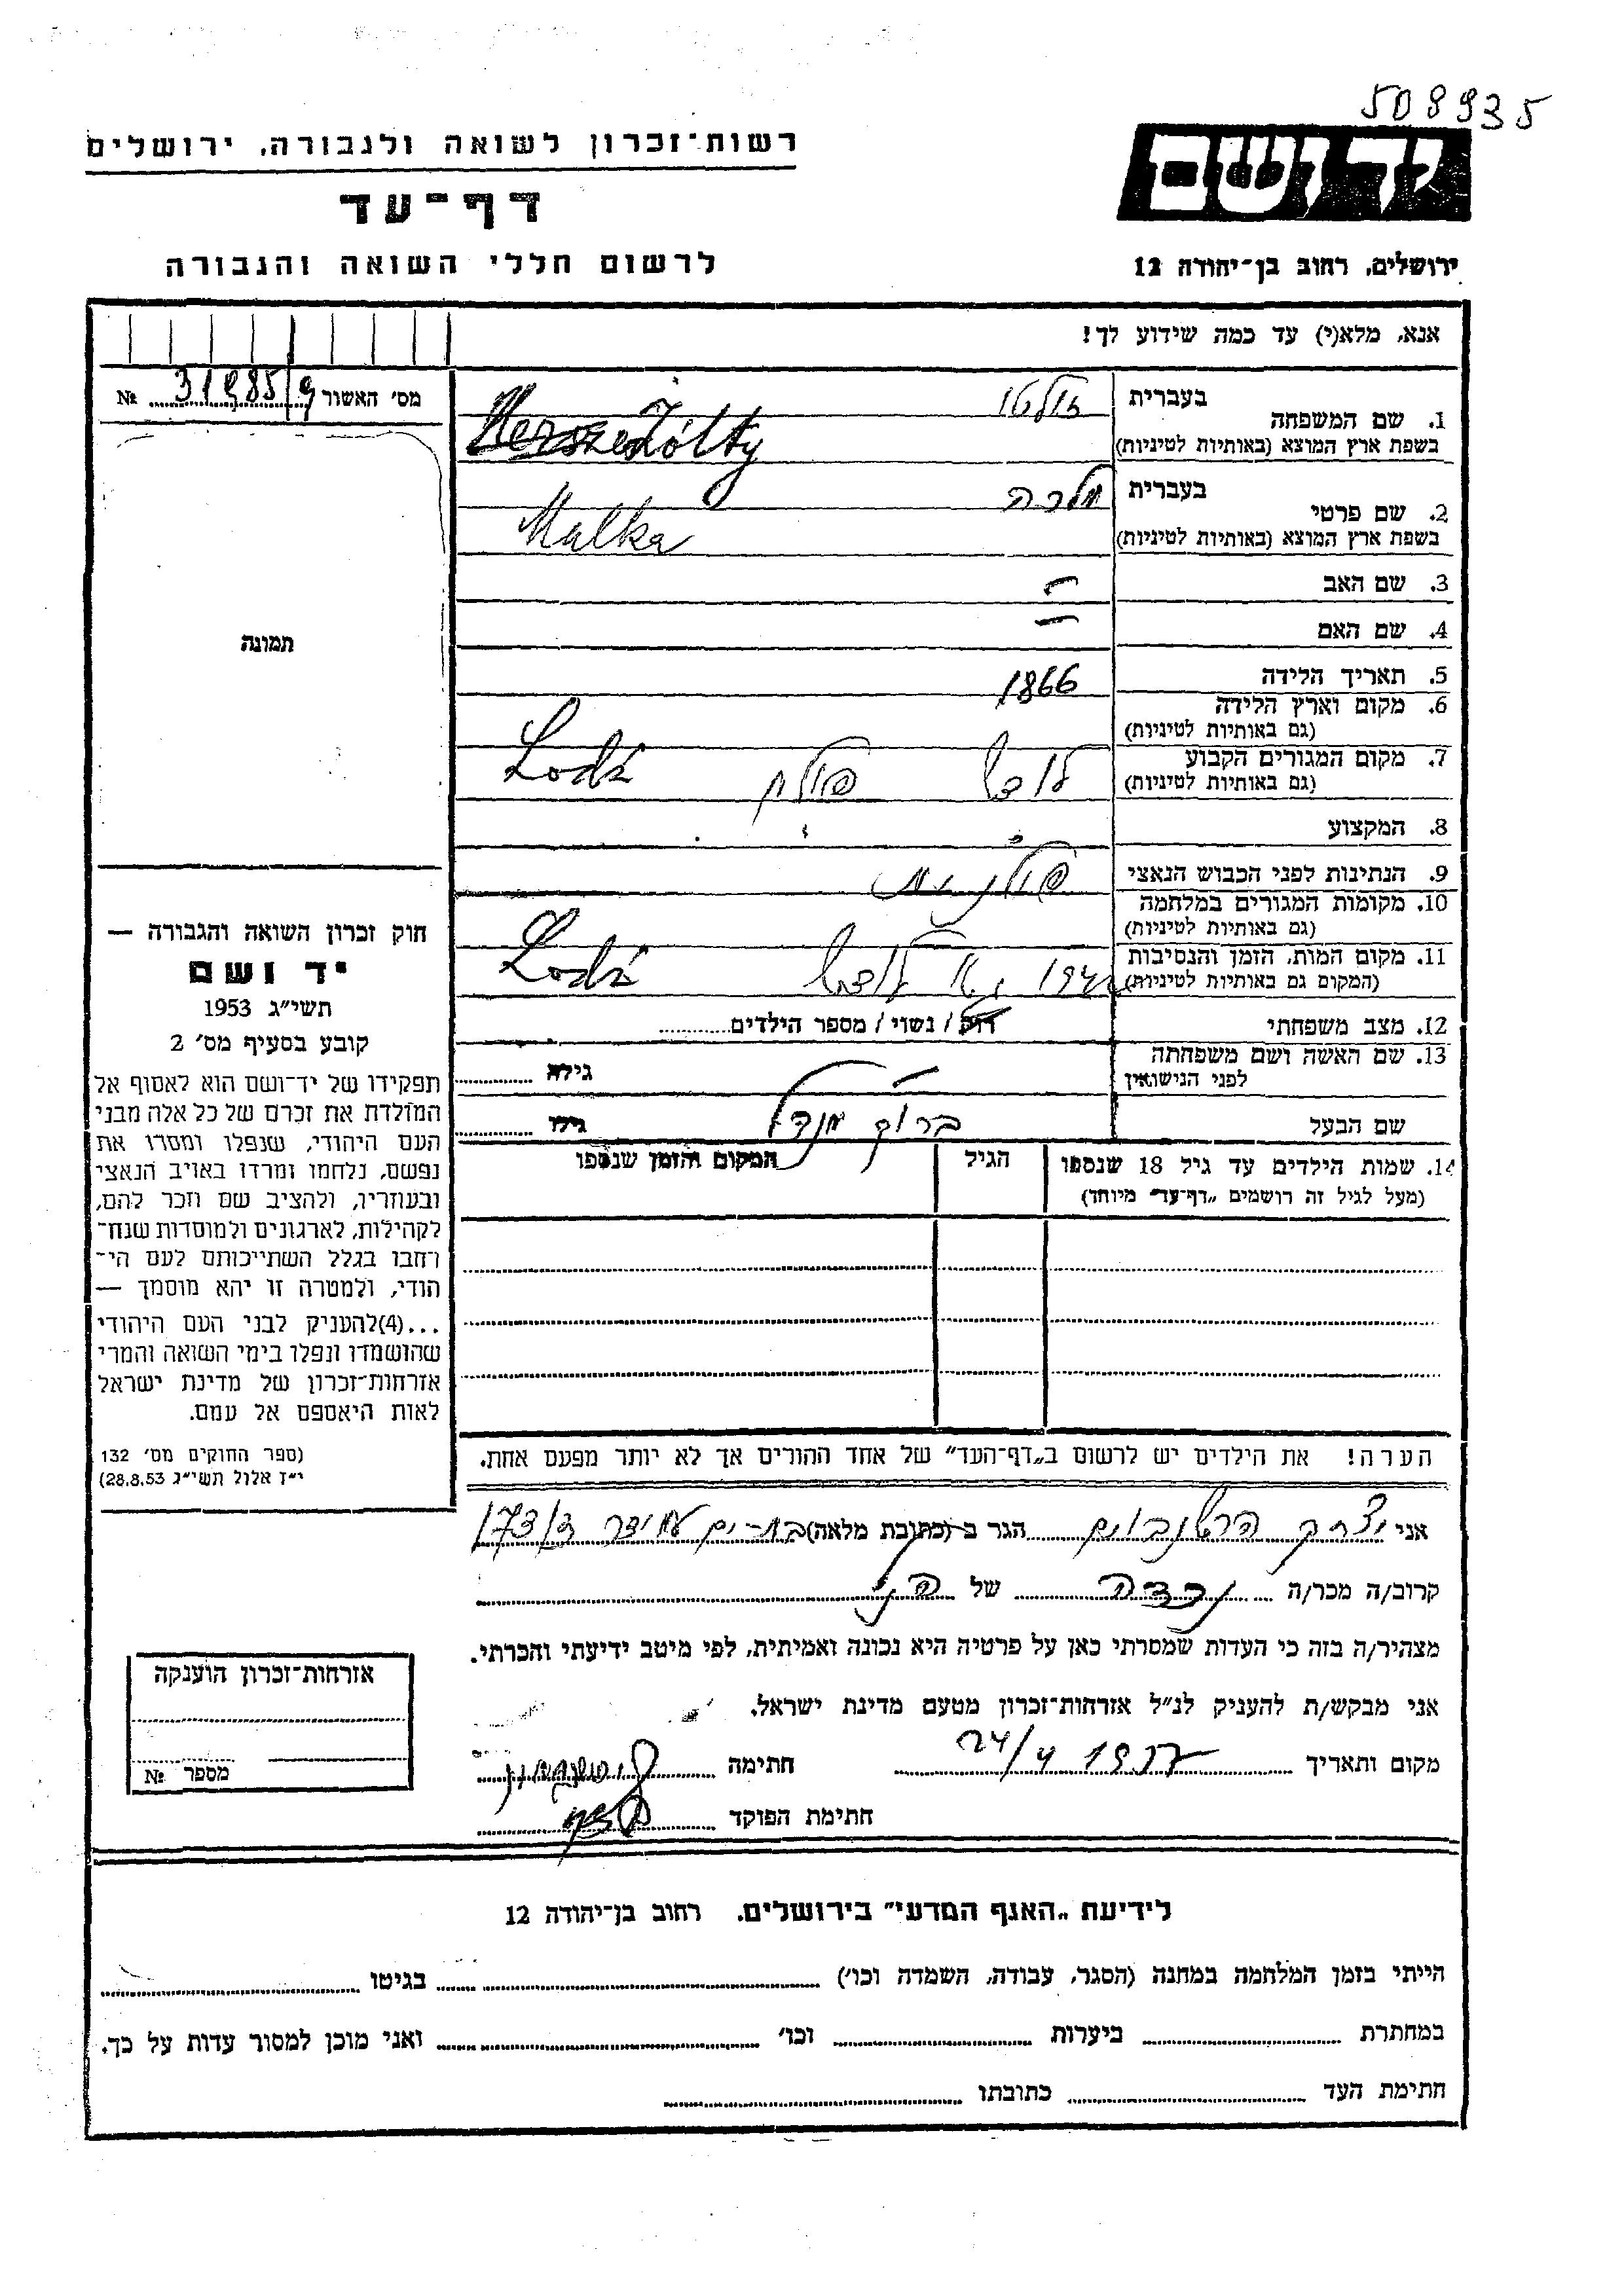 508935
רשות־זכרון לשואה ולגבורה, ירושלים
יד ושם
דף־עד
לרשום חללי השואה והגבורה
ירושלים, רחוב בן־יהודה 12
אנא, מלא(י) עד כמה שידוע לך!
מס׳ האשור № 
1. שם המשפחה
בעברית זולטי
בשפת ארץ המוצא (באותיות לטיניות) Żółty
2. שם פרטי
בעברית מלכה
בשפת ארץ המוצא (באותיות לטיניות) Malka
3. שם האב –
4. שם האם –
תמונה
5. תאריך הלידה 1866
6. מקום וארץ הלידה
(גם באותיות לטיניות)
7. מקום המגורים הקבוע לודז׳ פולין Lodź
(גם באותיות לטיניות)
8. המקצוע
9. הנתינות לפני הכבוש הנאצי פולנית
10. מקומות המגורים במלחמה
(גם באותיות לטיניות)
11. מקום המות, הזמן והנסיבות לודז׳ Lodź
(המקום גם באותיות לטיניות)
12. מצב משפחתי רווק / נשוי / מספר הילדים
13. שם האשה ושם משפחתה
לפני הנישואין – גילה
שם הבעל ברוך מנדל גילו
14. שמות הילדים עד גיל 18 שנספו הגיל המקום והזמן שנספו
(מעל לגיל זה רושמים „דף־עד״ מיוחד)
חוק זכרון השואה והגבורה —
יד ושם
תשי״ג 1953
קובע בסעיף מס׳ 2
תפקידו של יד־ושם הוא לאסוף אל
המולדת את זכרם של כל אלה מבני
העם היהודי, שנפלו ומסרו את
נפשם, נלחמו ומרדו באויב הנאצי
ובעוזריו, ולהציב שם וזכר להם,
לקהילות, לארגונים ולמוסדות שנח־
רחבו בגלל השתייכותם לעם הי־
הודי, ולמטרה זו יהא מוסמך —
...(4)להעניק לבני העם היהודי
שהושמדו ונפלו בימי השואה והמרי
אזרחות־זכרון של מדינת ישראל
לאות היאספם אל עמם.
(ספר החוקים מס׳ 132
י״ז אלול תשי״ג 28.8.53)
הערה! את הילדים יש לרשום ב„דף־העד״ של אחד ההורים אך לא יותר מפעם אחת.
אני יצחק הרשנבוים הגר ב (כתובת מלאה) בת־ים
קרוב/ה מכר/ה נכדה של הנ״ל
מצהיר/ה בזה כי העדות שמסרתי כאן על פרטיה היא נכונה ואמיתית, לפי מיטב ידיעתי והכרתי.
אני מבקש/ת להעניק לנ״ל אזרחות־זכרון מטעם מדינת ישראל.
מקום ותאריך 24/4 חתימה
חתימת הפוקד
אזרחות־זכרון הוענקה
מספר №
לידיעת „האגף המדעי״ בירושלים, רחוב בן־יהודה 12
הייתי בזמן המלחמה במחנה (הסגר, עבודה, השמדה וכו׳) בגיטו
במחתרת ביערות וכו׳ ואני מוכן למסור עדות על כך.
חתימת העד כתובתו